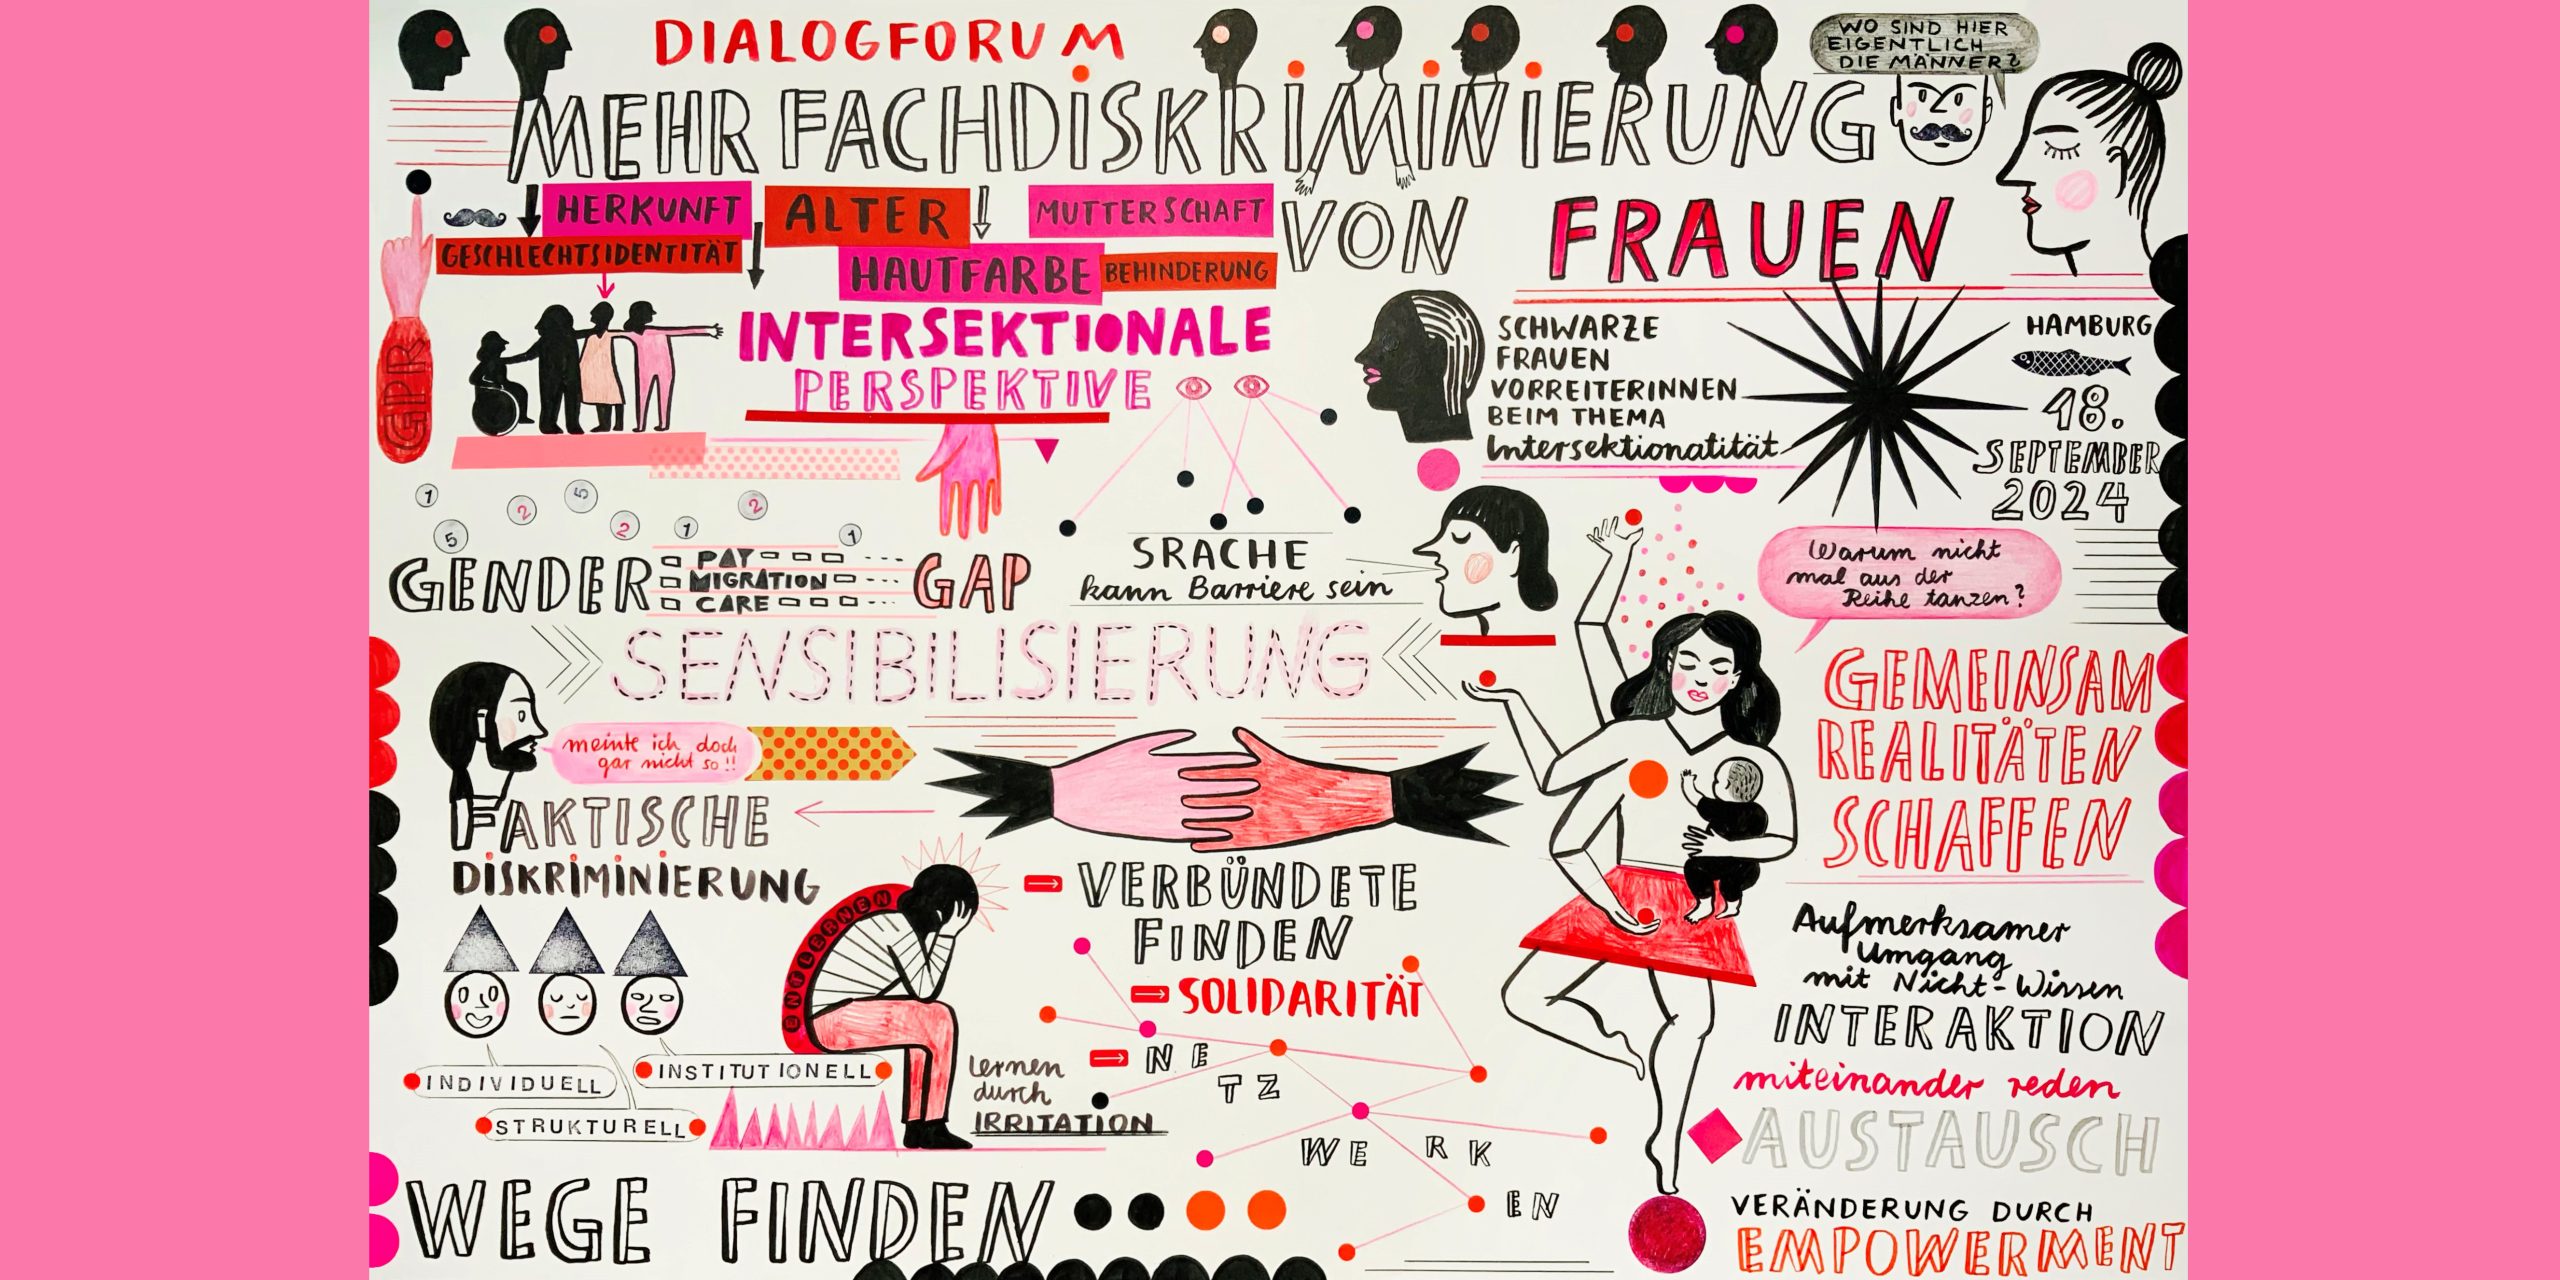 DIALOGFORUM
WO SIND HIER
EIGENTLICH
DIE MÄNNER?
MEHRFACHDISKRIMINIERUNG
VON FRAUEN
HERKUNFT
ALTER
MUTTERSCHAFT
GESCHLECHTSIDENTITÄT
HAUTFARBE
BEHINDERUNG
GPR
INTERSEKTIONALE
PERSPEKTIVE
SCHWARZE
FRAUEN
VORREITERINNEN
BEIM THEMA
Intersektionalität
HAMBURG
18.
SEPTEMBER
2024
1 5 2 5 2 1 2 1
GENDER
PAY
MIGRATION
CARE
GAP
SRACHE
kann Barriere sein
Warum nicht
mal aus der
Reihe tanzen?
SENSIBILISIERUNG
GEMEINSAM
REALITÄTEN
SCHAFFEN
meinte ich doch
gar nicht so!!
FAKTISCHE
DISKRIMINIERUNG
INDIVIDUELL
INSTITUTIONELL
STRUKTURELL
ENTLERNEN
Lernen
durch
IRRITATION
VERBÜNDETE
FINDEN
SOLIDARITÄT
NETZWERKEN
Aufmerksamer
Umgang
mit Nicht-Wissen
INTERAKTION
miteinander reden
AUSTAUSCH
VERÄNDERUNG DURCH
EMPOWERMENT
WEGE FINDEN